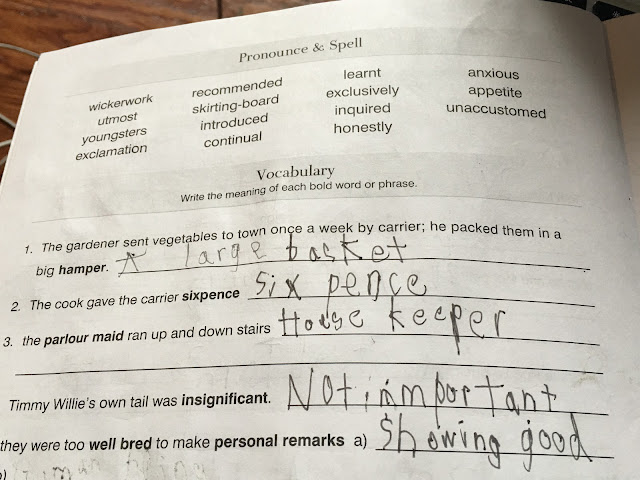 Pronounce & Spell
wickerwork recommended learnt anxious
utmost skirting-board exclusively appetite
youngsters introduced inquired unaccustomed
exclamation continual honestly
Vocabulary
Write the meaning of each bold word or phrase.
1. The gardener sent vegetables to town once a week by carrier; he packed them in a
big hamper. A large basket
2. The cook gave the carrier sixpence six pence
3. the parlour maid ran up and down stairs House keeper
Timmy Willie's own tail was insignificant. Not important
they were too well bred to make personal remarks a) Showing good